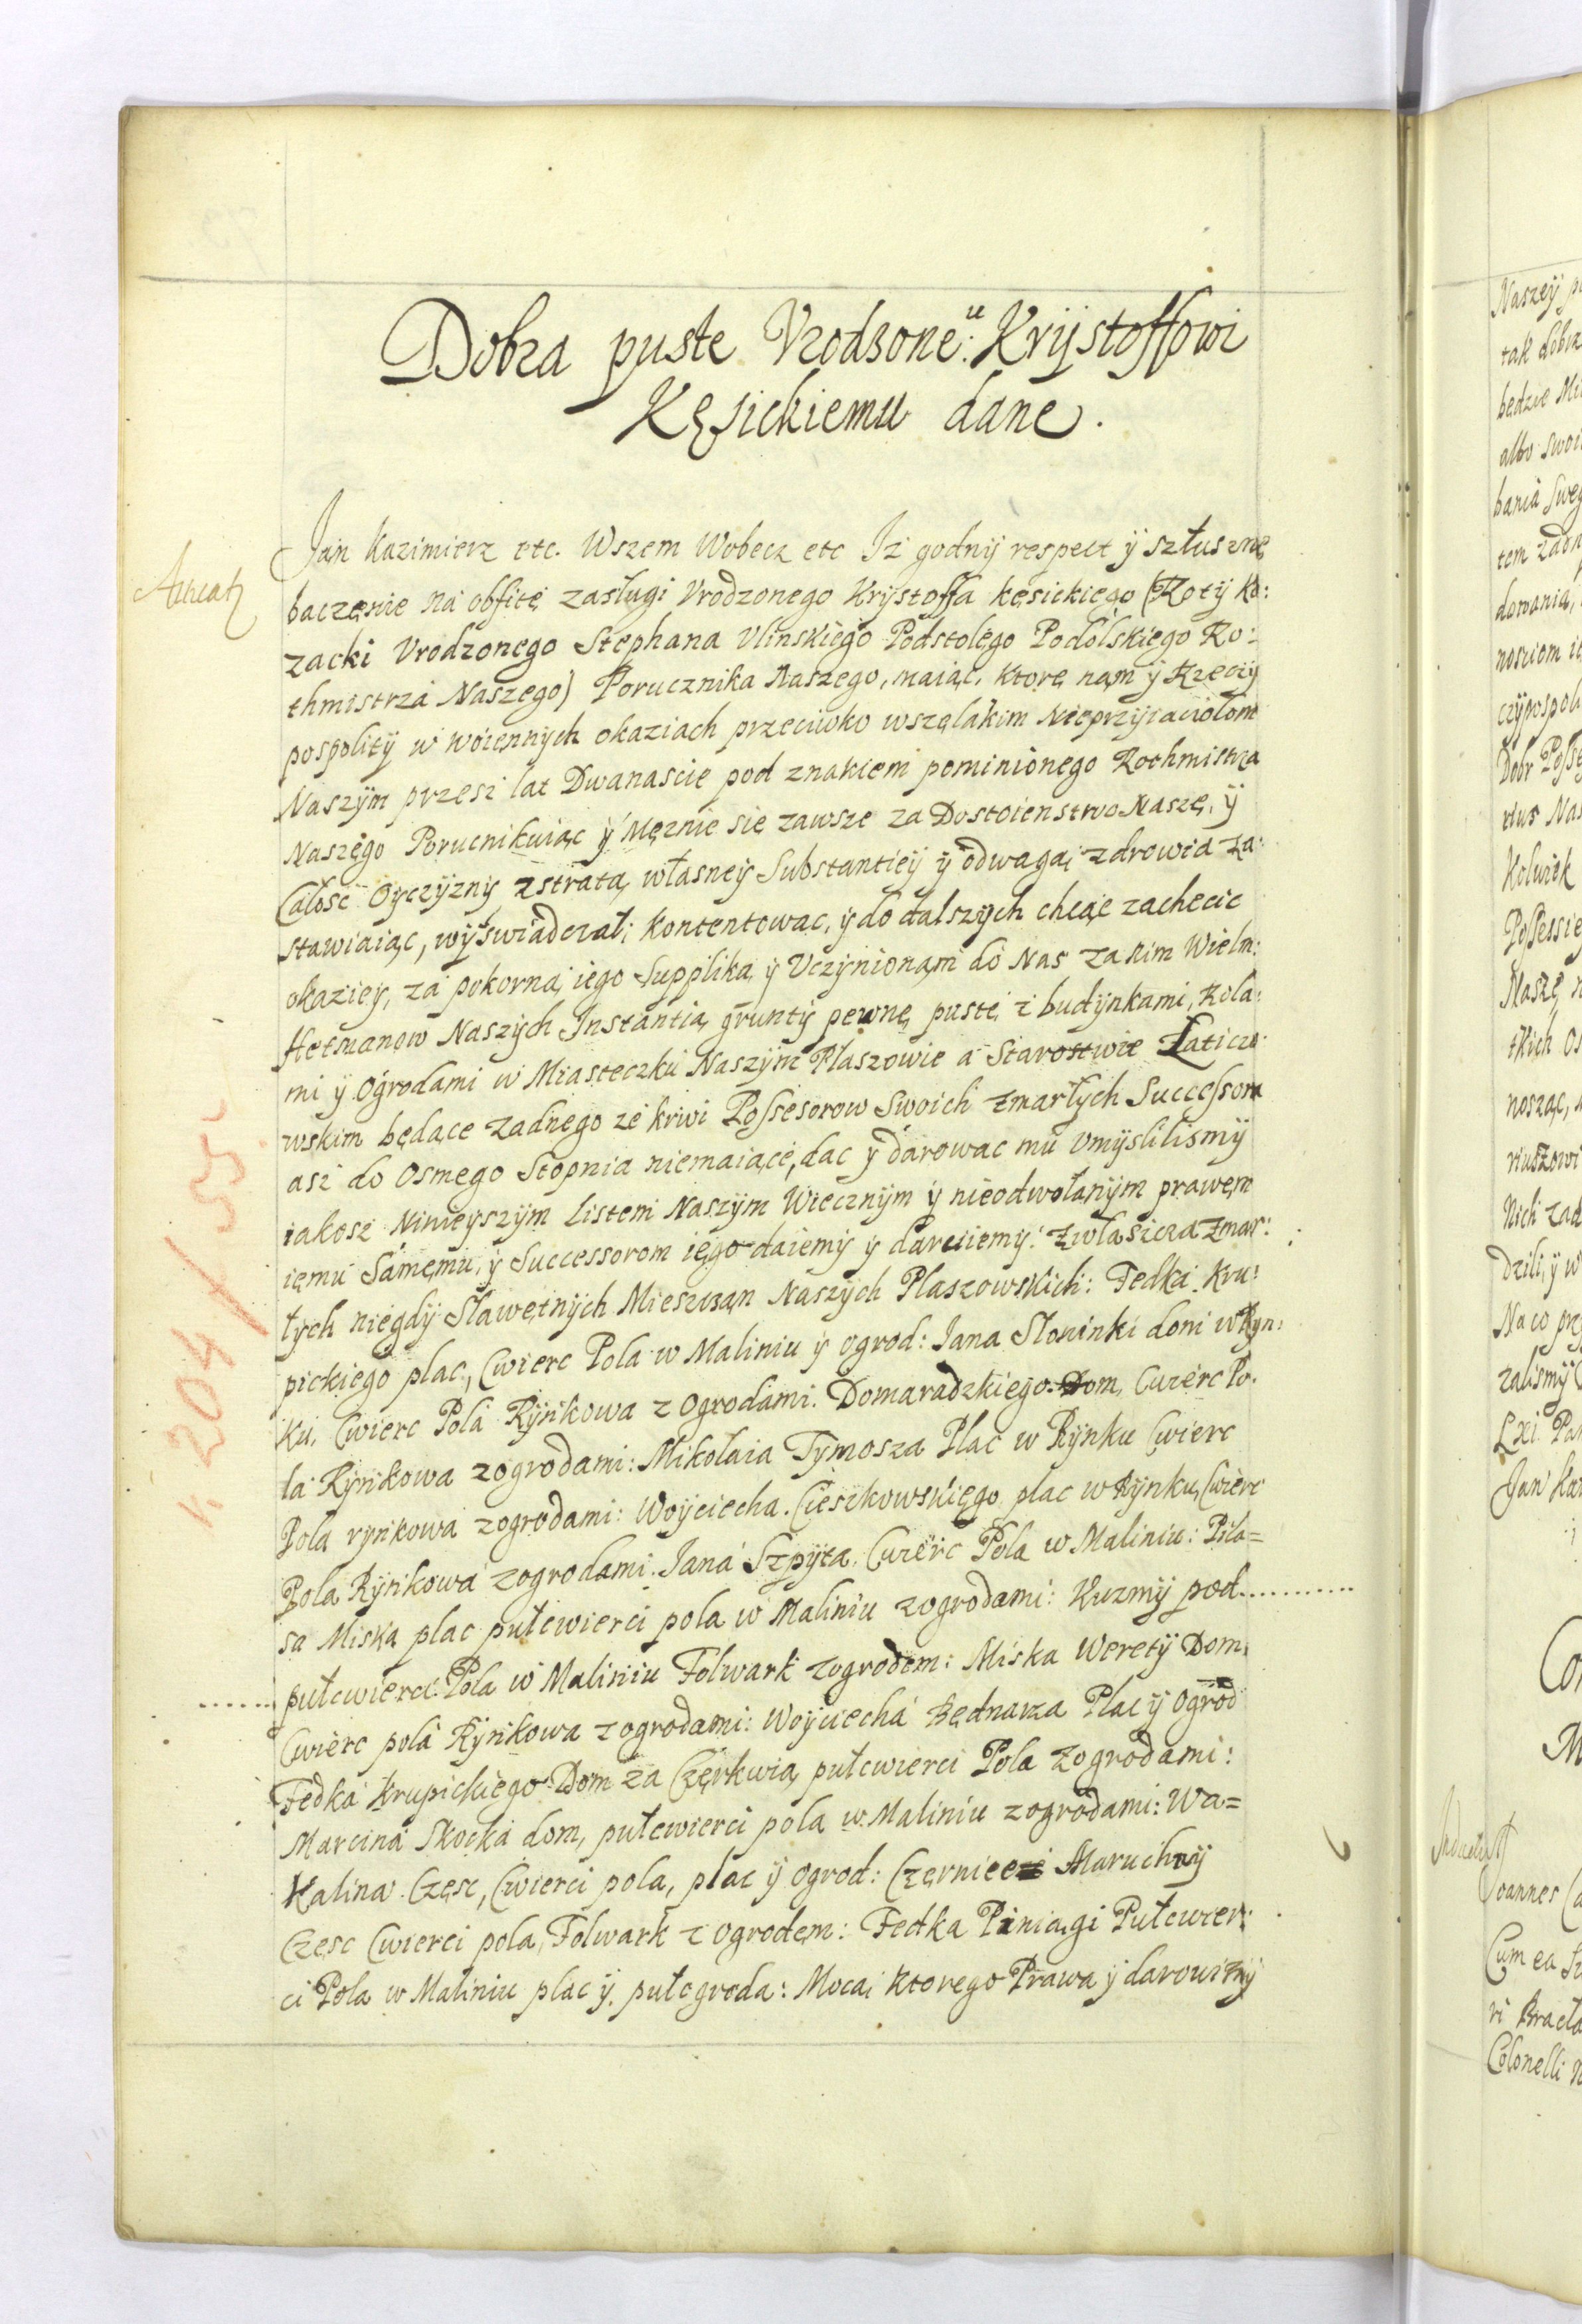 Dobra puste Vrodzone:u Krÿstoffowi
Kęsickiemu dane.
Jan Kazimierz etc. Wszem Wobecz etc Iż godnÿ respect ÿ sztuszne
baczęnie na obfite zasługi Vrodzonego Krÿstoffa kęsickiego (Rotÿ Ko:
zacki Vrodzonego Stephana Vlinskiego Podstolego Podolskiego Ro:
thmistrza Naszego) Porucznika Naszego, maiąc, ktore nam ÿ Rzeczÿ
pospolitÿ w woiennÿch okaziach przeciwko wszelakim Nieprzÿiaciołom
Naszÿm przesz lat Dwanascie pod znakiem pominionego Rothmistrza
Naszego Porucnikuiąc ÿ Męznie się zawsze za Dostoienstwo Naszę, ÿ
Całosc Oÿczÿznÿ zstratą własneÿ Substantieÿ ÿ odwagą zdrowia za:
stawiaiąc, wÿswiadczał; kontentowac, ÿ do dalszÿch chcąc zachecic
okazieÿ, za pokorną iego Supplika ÿ Vczÿnionąm do Nas za nim Wielm:
Hetmanow Naszÿch Instantią, gruntÿ pewne puste z budÿnkami, Rola:
mi ÿ Ogrodami w Miasteczku Naszÿm Płaszowie a Starostwie Laticzo:
wskim będące zadnego ze krwi Possesorow Swoich zmarłÿch Successora
asz do Osmego Stopnia niemaiące, dac ÿ darowac mu vmÿslilismÿ
iakosz Ninieÿszÿm Listem Naszÿm Wiecznÿm ÿ nieodwołanÿm prawem
iemu Samemu, ÿ Successorom iego daiemÿ ÿ daruiemÿ: Zwłaszcza Zmar:
łÿch niegdÿ Sławetnÿch Mieszczan Naszÿch Plaszowskich: Fedka Kru:
pickiego plac, Cwierc Pola w Maliniu ÿ ogrod: Iana Słoninki dom w Rÿn:
ku, Cwierc Pola Rÿnkowa z Ogrodami: Domaradzkiego Dom, Cwierc Po:
la Rÿnkowa zogrodami: Mikołaia Tÿmosza Plac w Rÿnku Cwierc
Pola rÿnkowa zogrodami: Woÿciecha Cieszkowskiego plac w Rÿnku, Cwierc
Pola Rÿnkowa zogrodami Iana Szpÿta Cwierc Pola w Maliniu: Pila=
sa Miska plac pułcwierci pola w Maliniu zogrodami: Kuzmÿ pod...........
...... pułcwierci Pola w Maliniu Folwark zogrodem: Miska Weretÿ Dom,
Cwierc pola Rÿnkowa z ogrodami: Woÿciecha Bednarza Plac ÿ Ogrod
Fedka Krupickiego Dom za Cerkwią pułcwierci Pola zogrodami:
Marcina Skocka dom, pułcwierci pola w Maliniu zogrodami: Wa=
Kalina Częsc, Cwierci pola, plac ÿ ogrod: Maruchnÿ
Częsc Cwierci pola, Folwark z Ogrodem: Fedka Piniagi Pułcwier:
ci Pola w Maliniu plac ÿ pułogroda: Mocą ktorego Prawa ÿ darowiznÿ
k. 204 / 55
Naszeÿ
tak dobra
będzie
albo swoi
bania
tem
dowania,
nosciom
czÿpospoli
Dobr
Kolwiek
Possessie
Naszę
tkich
nosząc,
riuszowi
Nich
dzili, ÿ w
Na co
zalismÿ
Jan
Joannes
Cum ea
Colonelli